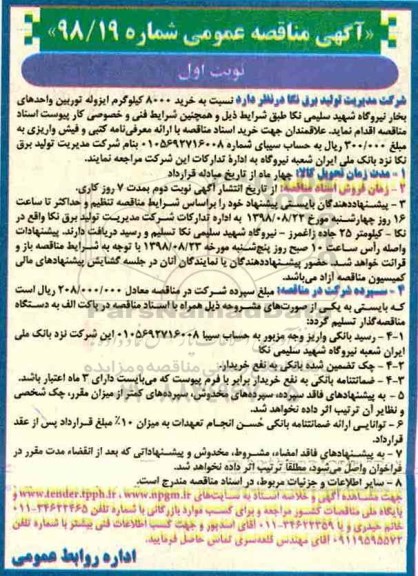 «آگهی مناقصه عمومی شماره ۹۸/۱۹»
نوبت اول
شرکت مدیریت تولید برق نکا درنظر دارد نسبت به خرید ۸۰۰۰ کیلوگرم ایزوله توربین واحدهای
بخار نیروگاه شهید سلیمی نکا طبق شرایط ذیل و همچنین شرایط فنی و خصوصی کار پیوست اسناد
مناقصه اقدام نماید. علاقمندان جهت خرید اسناد مناقصه با ارائه معرفی‌نامه کتبی و فیش واریزی به
مبلغ ۳۰۰/۰۰۰ ریال به حساب سیبای شماره ۰۱۰۵۶۹۲۷۱۶۰۰۸ بنام شرکت مدیریت تولید برق
نکا نزد بانک ملی ایران شعبه نیروگاه به ادارۀ تدارکات این شرکت مراجعه نمایند.
۱ - مدت زمان تحویل کالا: چهار ماه از تاریخ مبادله قرارداد
۲ - زمان فروش اسناد مناقصه: از تاریخ انتشار آگهی نوبت دوم بمدت ۷ روز کاری.
۳ - پیشنهاددهندگان بایستی پیشنهاد خود را براساس شرایط مناقصه تنظیم و حداکثر تا ساعت
۱۶ روز چهارشنبه مورخ ۱۳۹۸/۰۸/۲۲ به اداره تدارکات شرکت مدیریت تولید برق نکا واقع در
نکا - کیلومتر ۲۵ جاده زاغمرز - نیروگاه شهید سلیمی نکا تسلیم و رسید دریافت دارند. پیشنهادات
واصله رأس ساعت ۱۰ صبح روز پنج‌شنبه مورخه ۱۳۹۸/۰۸/۲۳ با توجه به شرایط مناقصه باز و
قرائت خواهد شد. حضور پیشنهاددهندگان یا نمایندگان آنان در جلسه گشایش پیشنهادهای مالی
کمیسیون مناقصه آزاد می‌باشد.
۴ - سپرده شرکت در مناقصه: مبلغ سپرده شرکت در مناقصه معادل ۲۰۸/۰۰۰/۰۰۰ ریال است
که بایستی به یکی از صورت‌های مشروحه ذیل همراه با اسناد مناقصه در پاکت الف به دستگاه
مناقصه‌گذار تسلیم گردد:
۴-۱ - رسید بانکی واریز وجه مزبور به حساب سیبا ۰۱۰۵۶۹۲۷۱۶۰۰۸ این شرکت نزد بانک ملی
ایران شعبه نیروگاه شهید سلیمی نکا
۴-۲ - چک تضمین شده بانکی به نفع خریدار.
۴-۳ - ضمانتنامه بانکی به نفع خریدار برابر با فرم پیوست که می‌بایست دارای ۳ ماه اعتبار باشد.
۵ - به پیشنهادهای فاقد سپرده، سپرده‌های مخدوش، سپرده‌های کمتر از میزان مقرر، چک شخصی
و نظایر آن ترتیب اثر داده نخواهد شد.
۶ - توانایی ارائه ضمانتنامه بانکی حُسن انجام تعهدات به میزان ۱۰٪ مبلغ قرارداد پس از عقد
قرارداد.
۷ - به پیشنهادهای فاقد امضاء، مشروط، مخدوش و پیشنهاداتی که بعد از انقضاء مدت مقرر در
فراخوان واصل می‌شود، مطلقاً ترتیب اثر داده نخواهد شد.
۸ - سایر اطلاعات و جزئیات مربوط، در اسناد مناقصه مندرج است.
جهت مشاهده آگهی و خلاصه اسناد به سایت‌های www.npgm.ir ، www.tender.tpph.ir و
پایگاه ملی مناقصات کشور مراجعه و برای کسب موارد بازرگانی با شماره تلفن ۳۴۶۲۲۴۶۵-۰۱۱
خانم حیدری و یا ۳۴۶۲۲۳۵۹-۰۱۱ آقای اسدپور و جهت کسب اطلاعات فنی بیشتر با شماره تلفن
۰۹۱۱۹۵۹۵۵۷۲ آقای مهندس قلعه‌سری تماس حاصل فرمایید.
اداره روابط عمومی